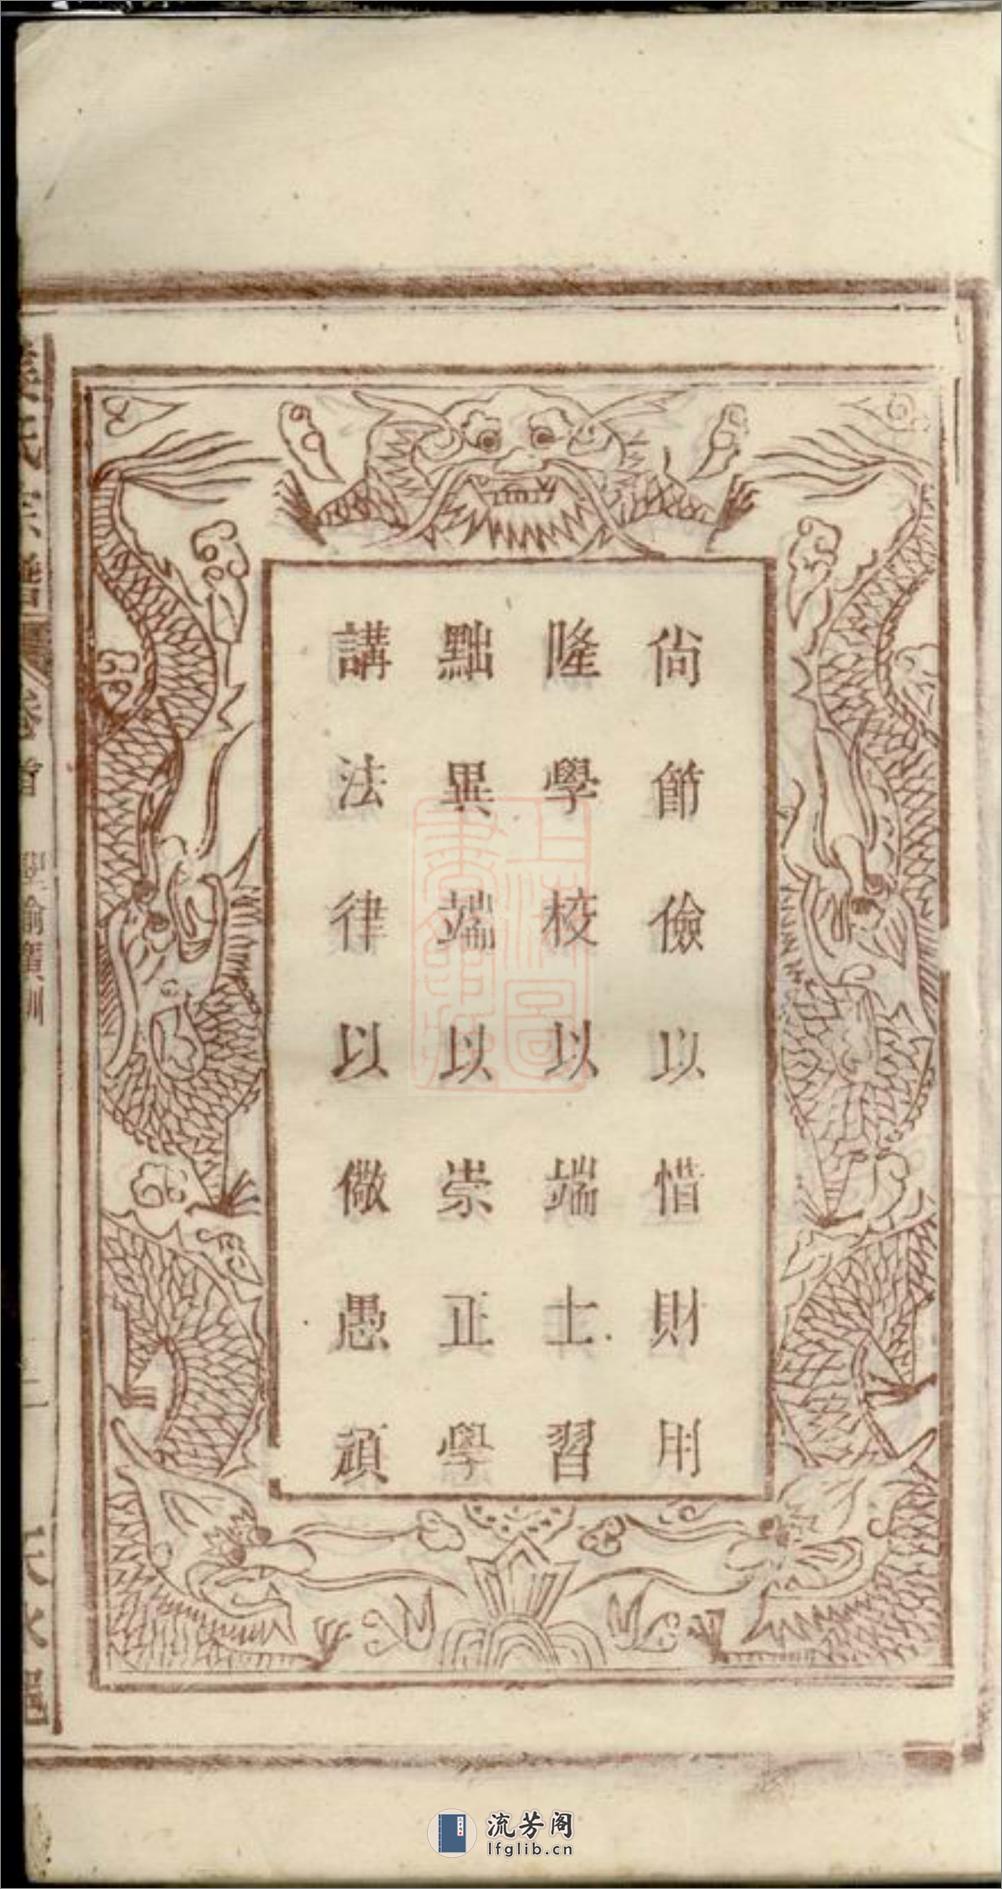 尙節儉以惜財用
隆學校以端士習
黜異端以崇正學
講法律以儆愚頑
氏宗譜 卷首 聖諭廣訓
上海圖書館藏
流芳阁
lfglib.cn